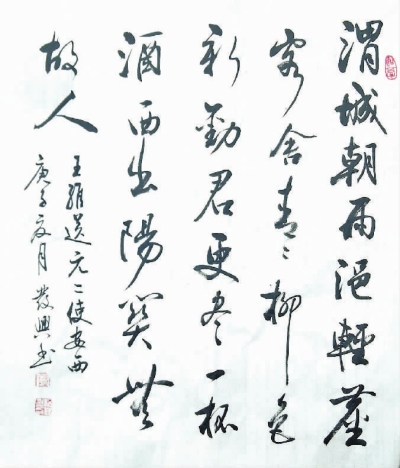 渭城朝雨浥輕塵
客舍青〻柳色
新勸君更盡一杯
酒西出陽關無
故人
王維送元二使安西
庚子夏月發興書